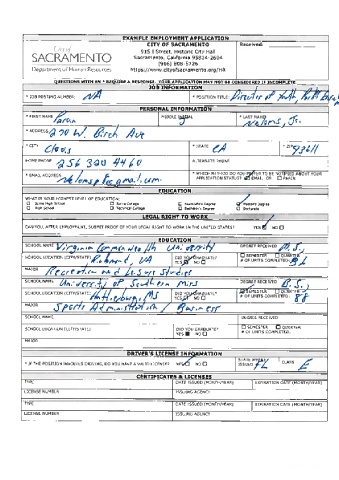 EXAMPLE EMPLOYMENT APPLICATION
City of
SACRAMENTO
Department of Human Resources
CITY OF SACRAMENTO
915 I Street, Historic City Hall
Sacramento, California 95814-2604
(916) 808-5726
https://www.cityofsacramento.org/HR
Received:
QUESTIONS WITH AN * REQUIRE A RESPONSE. YOUR APPLICATION MAY NOT BE CONSIDERED IF INCOMPLETE
JOB INFORMATION
* JOB POSTING NUMBER: NA
* POSITION TITLE: Director of Youth
PERSONAL INFORMATION
* FIRST NAME
MIDDLE INITIAL
* LAST NAME
Jr.
* ADDRESS 270 W. Birch Ave
* CITY Clovis
* STATE CA
* ZIP 93611
HOME PHONE 256 300 4460
ALTERNATE PHONE
* EMAIL ADDRESS
* WHICH METHOD DO YOU PREFER TO BE NOTIFIED ABOUT YOUR
APPLICATION STATUS? EMAIL OR PAPER
EDUCATION
WHAT IS YOUR HIGHEST LEVEL OF EDUCATION?
Some High School
Some College
Bachelors Degree
Masters Degree
High School
Technical College
Doctorate
LEGAL RIGHT TO WORK
CAN YOU, AFTER EMPLOYMENT, SUBMIT PROOF OF YOUR LEGAL RIGHT TO WORK IN THE UNITED STATES? YES NO
EDUCATION
SCHOOL NAME Virginia Commonwealth University
DEGREE RECEIVED
SCHOOL LOCATION (CITY/STATE) Richmond, VA
DID YOU GRADUATE?
YES NO
SEMESTER QUARTER
# OF UNITS COMPLETED:
MAJOR
Recreation and Leisure Studies
SCHOOL NAME University of Southern Miss
DEGREE RECEIVED B.S.
SCHOOL LOCATION (CITY/STATE) Hattiesburg, MS
DID YOU GRADUATE?
YES NO
SEMESTER QUARTER
# OF UNITS COMPLETED: 88
MAJOR
Sports Administration / Business
SCHOOL NAME
DEGREE RECEIVED
SCHOOL LOCATION (CITY/STATE)
DID YOU GRADUATE?
YES NO
SEMESTER QUARTER
# OF UNITS COMPLETED:
MAJOR
DRIVER'S LICENSE INFORMATION
* IF THE POSITION INVOLVES DRIVING, DO YOU HAVE A VALID LICENSE? YES NO
STATE WHERE
ISSUED FL
CLASS E
CERTIFICATES & LICENSES
TYPE
DATE ISSUED (MONTH/YEAR)
EXPIRATION DATE (MONTH/YEAR)
LICENSE NUMBER
ISSUING AGENCY
TYPE
DATE ISSUED (MONTH/YEAR)
EXPIRATION DATE (MONTH/YEAR)
LICENSE NUMBER
ISSUING AGENCY